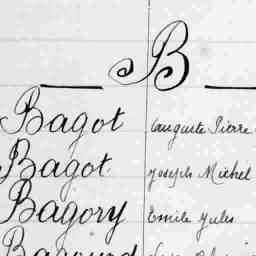 B
Bagot Auguste Pierre
Bagot Joseph Michel
Bagory Emile Jules